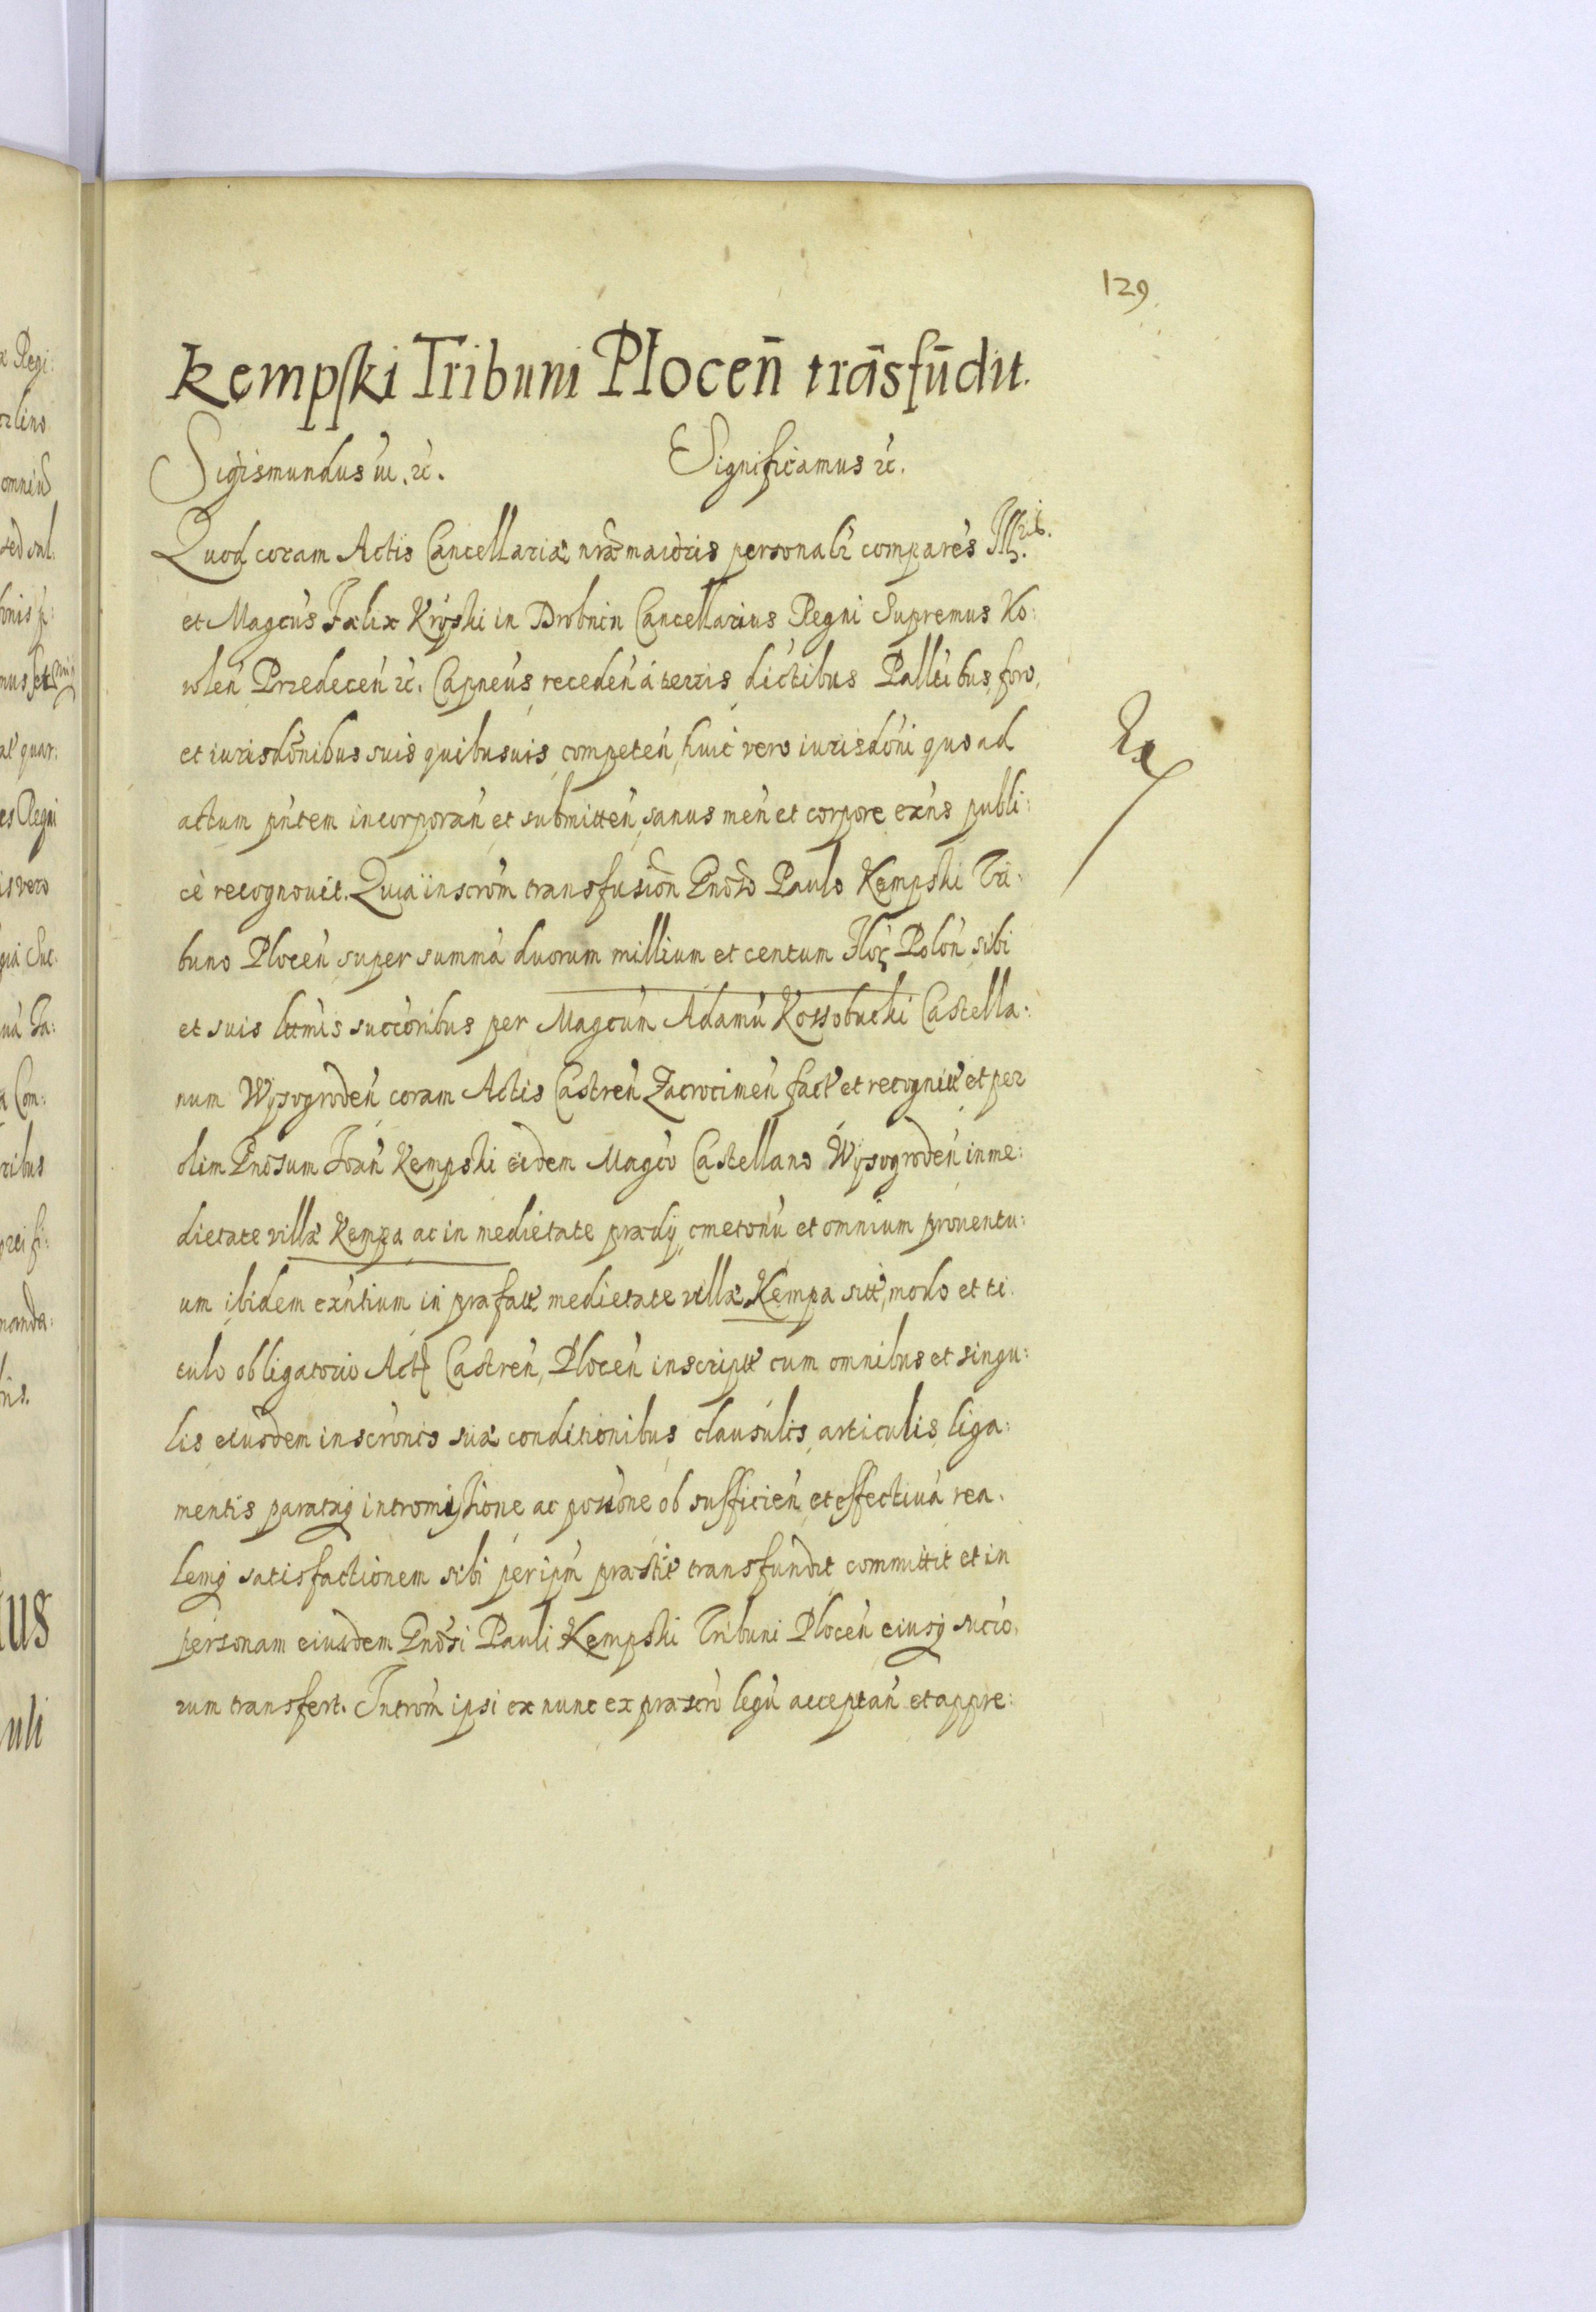 129
Kempski Tribuni Plocen̄ trāsfūdit.
Sigismundus iii. &c. Significamus &c.
Quod coram Actis Cancellariæ nræ maioris personalr comparēs Ill̄ris.
et Magcus Fælix Kryski in Drobnin Cancellarius Regni Supremus Ko:
wlen̄ Przedecen̄ &c. Capneus receden̄ á terris dictibus Palltibus, foro,
et iurisdōnibus suis quibusuis competen̄, huic vero iurisdōni quo ad
actum pn̄tem incorporan̄ et submitten̄, sanus men̄ et corpore exn̄s publi:
cè recognouit. Quia inscrom̄ transfusion̄ Gnōso Paulo Kempski Tri:
buno Plocen̄ super summā duorum millium et centum Flor Polon̄ sibi
et suis lttmis succoribus per Magcum̄ Adamū Kossobucki Castella:
num Wysogroden̄ coram Actis Castren̄ Zacrocimen̄ fact et recognitt et per
olim Gnosum Joan̄ Kempski eidem Magco Castellano Wysogroden̄ in me:
dietate villæ Kempa ac in medietate prædij, cmetonū et omnium prouentu:
um ibidem exn̄tium in præfatt medietate villæ Kempa sitt, modo et ti:
tulo obligatorio Act Castren̄, Plocen̄ inscriptt cum omnibus et singu:
lis eiusdem inscronis suæ conditionibus clausulis, articulis, liga:
mentis paratáq intromissione ac possone ob sufficien̄ et effectiuā rea:
lemq satisfactionem sibi per ipm̄ præstit transfundit committit et in
personam eiusdem Gnosi Pauli Kempski Tribuni Plocen̄ eiusq succo:
rum transfert. Introm̄ ipsi ex nunc ex præscro legū acceptan̄ et appre: